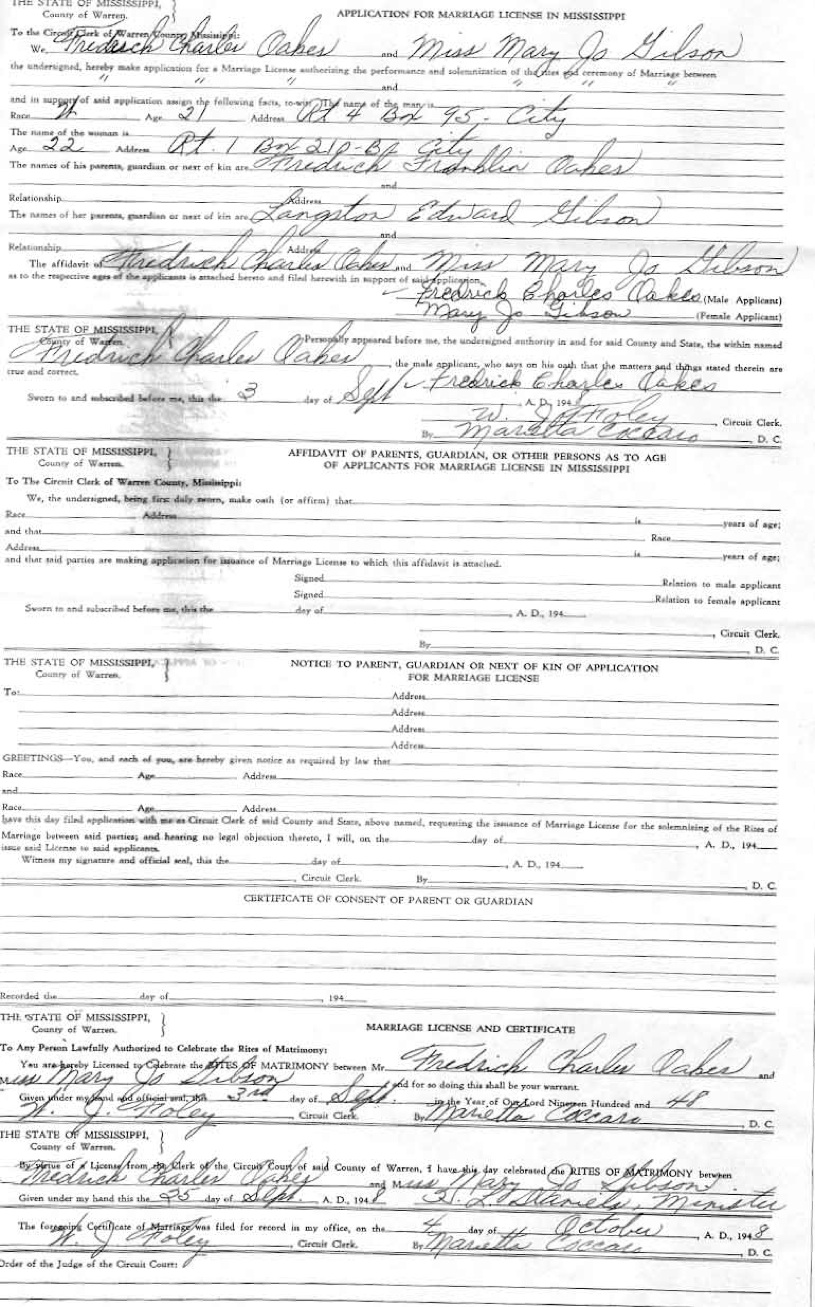 THE STATE OF MISSISSIPPI,
County of Warren.
APPLICATION FOR MARRIAGE LICENSE IN MISSISSIPPI
To the Circuit Clerk of Warren County, Mississippi:
We, Fredrich Charles Oakes and Miss Mary Jo Gibson
the undersigned, hereby make application for a Marriage License authorizing the performance and solemnization of the rites and ceremony of Marriage between
" " and " "
and in support of said application assign the following facts, to-wit: The name of the man is
Race W Age 21 Address Rt 4 Box 95 - City
The name of the woman is
Age 22 Address Rt. 1 Box 210-B City
The names of his parents, guardian or next of kin are Fredrich Franklin Oakes
and
Relationship Address
The names of her parents, guardian or next of kin are Langston Edward Gibson
and
Relationship Address
The affidavit of Fredrich Charles Oakes and Miss Mary Jo Gibson
as to the respective ages of the applicants is attached hereto and filed herewith in support of said application.
Fredrick Charles Oakes (Male Applicant)
Mary Jo Gibson (Female Applicant)
THE STATE OF MISSISSIPPI,
County of Warren.
Personally appeared before me, the undersigned authority in and for said County and State, the within named
Fredrich Charles Oakes, the male applicant, who says on his oath that the matters and things stated therein are
true and correct. Fredrick Charles Oakes
Sworn to and subscribed before me, this the 3 day of Sept, A. D., 1948
W. J. Foley, Circuit Clerk.
By Marietta Coccaro D. C.
THE STATE OF MISSISSIPPI,
County of Warren.
AFFIDAVIT OF PARENTS, GUARDIAN, OR OTHER PERSONS AS TO AGE
OF APPLICANTS FOR MARRIAGE LICENSE IN MISSISSIPPI
To The Circuit Clerk of Warren County, Mississippi:
We, the undersigned, being first duly sworn, make oath (or affirm) that
Race Address is years of age;
and that Race
Address is years of age;
and that said parties are making application for issuance of Marriage License to which this affidavit is attached.
Signed Relation to male applicant
Signed Relation to female applicant
Sworn to and subscribed before me, this the day of , A. D., 194
, Circuit Clerk.
By , D. C.
THE STATE OF MISSISSIPPI,
County of Warren.
NOTICE TO PARENT, GUARDIAN OR NEXT OF KIN OF APPLICATION
FOR MARRIAGE LICENSE
To: Address
Address
Address
Address
GREETINGS—You, and each of you, are hereby given notice as required by law that
Race Age Address
and
Race Age Address
have this day filed application with me as Circuit Clerk of said County and State, above named, requesting the issuance of Marriage License for the solemnizing of the Rites of
Marriage between said parties; and hearing no legal objection thereto, I will, on the day of , A. D., 194
issue said License to said applicants.
Witness my signature and official seal, this the day of , A. D., 194
, Circuit Clerk. By , D. C.
CERTIFICATE OF CONSENT OF PARENT OR GUARDIAN
Recorded the day of , 194
THE STATE OF MISSISSIPPI,
County of Warren.
MARRIAGE LICENSE AND CERTIFICATE
To Any Person Lawfully Authorized to Celebrate the Rites of Matrimony:
You are hereby Licensed to Celebrate the RITES OF MATRIMONY between Mr. Fredrich Charles Oakes and
Miss Mary Jo Gibson and for so doing this shall be your warrant.
Given under my hand and official seal, this 3rd day of Sept. in the Year of Our Lord Nineteen Hundred and 48
W. J. Foley Circuit Clerk. By Marietta Coccaro D. C.
THE STATE OF MISSISSIPPI,
County of Warren.
By virtue of a License from the Clerk of the Circuit Court of said County of Warren, I have this day celebrated the RITES OF MATRIMONY between
Fredrich Charles Oakes and Miss Mary Jo Gibson
Given under my hand this the 25 day of Sept. A. D., 1948 L. Daniels, Minister
The foregoing Certificate of Marriage was filed for record in my office, on the 4 day of October, A. D., 1948
W. J. Foley, Circuit Clerk. By Marietta Coccaro D. C.
Order of the Judge of the Circuit Court: